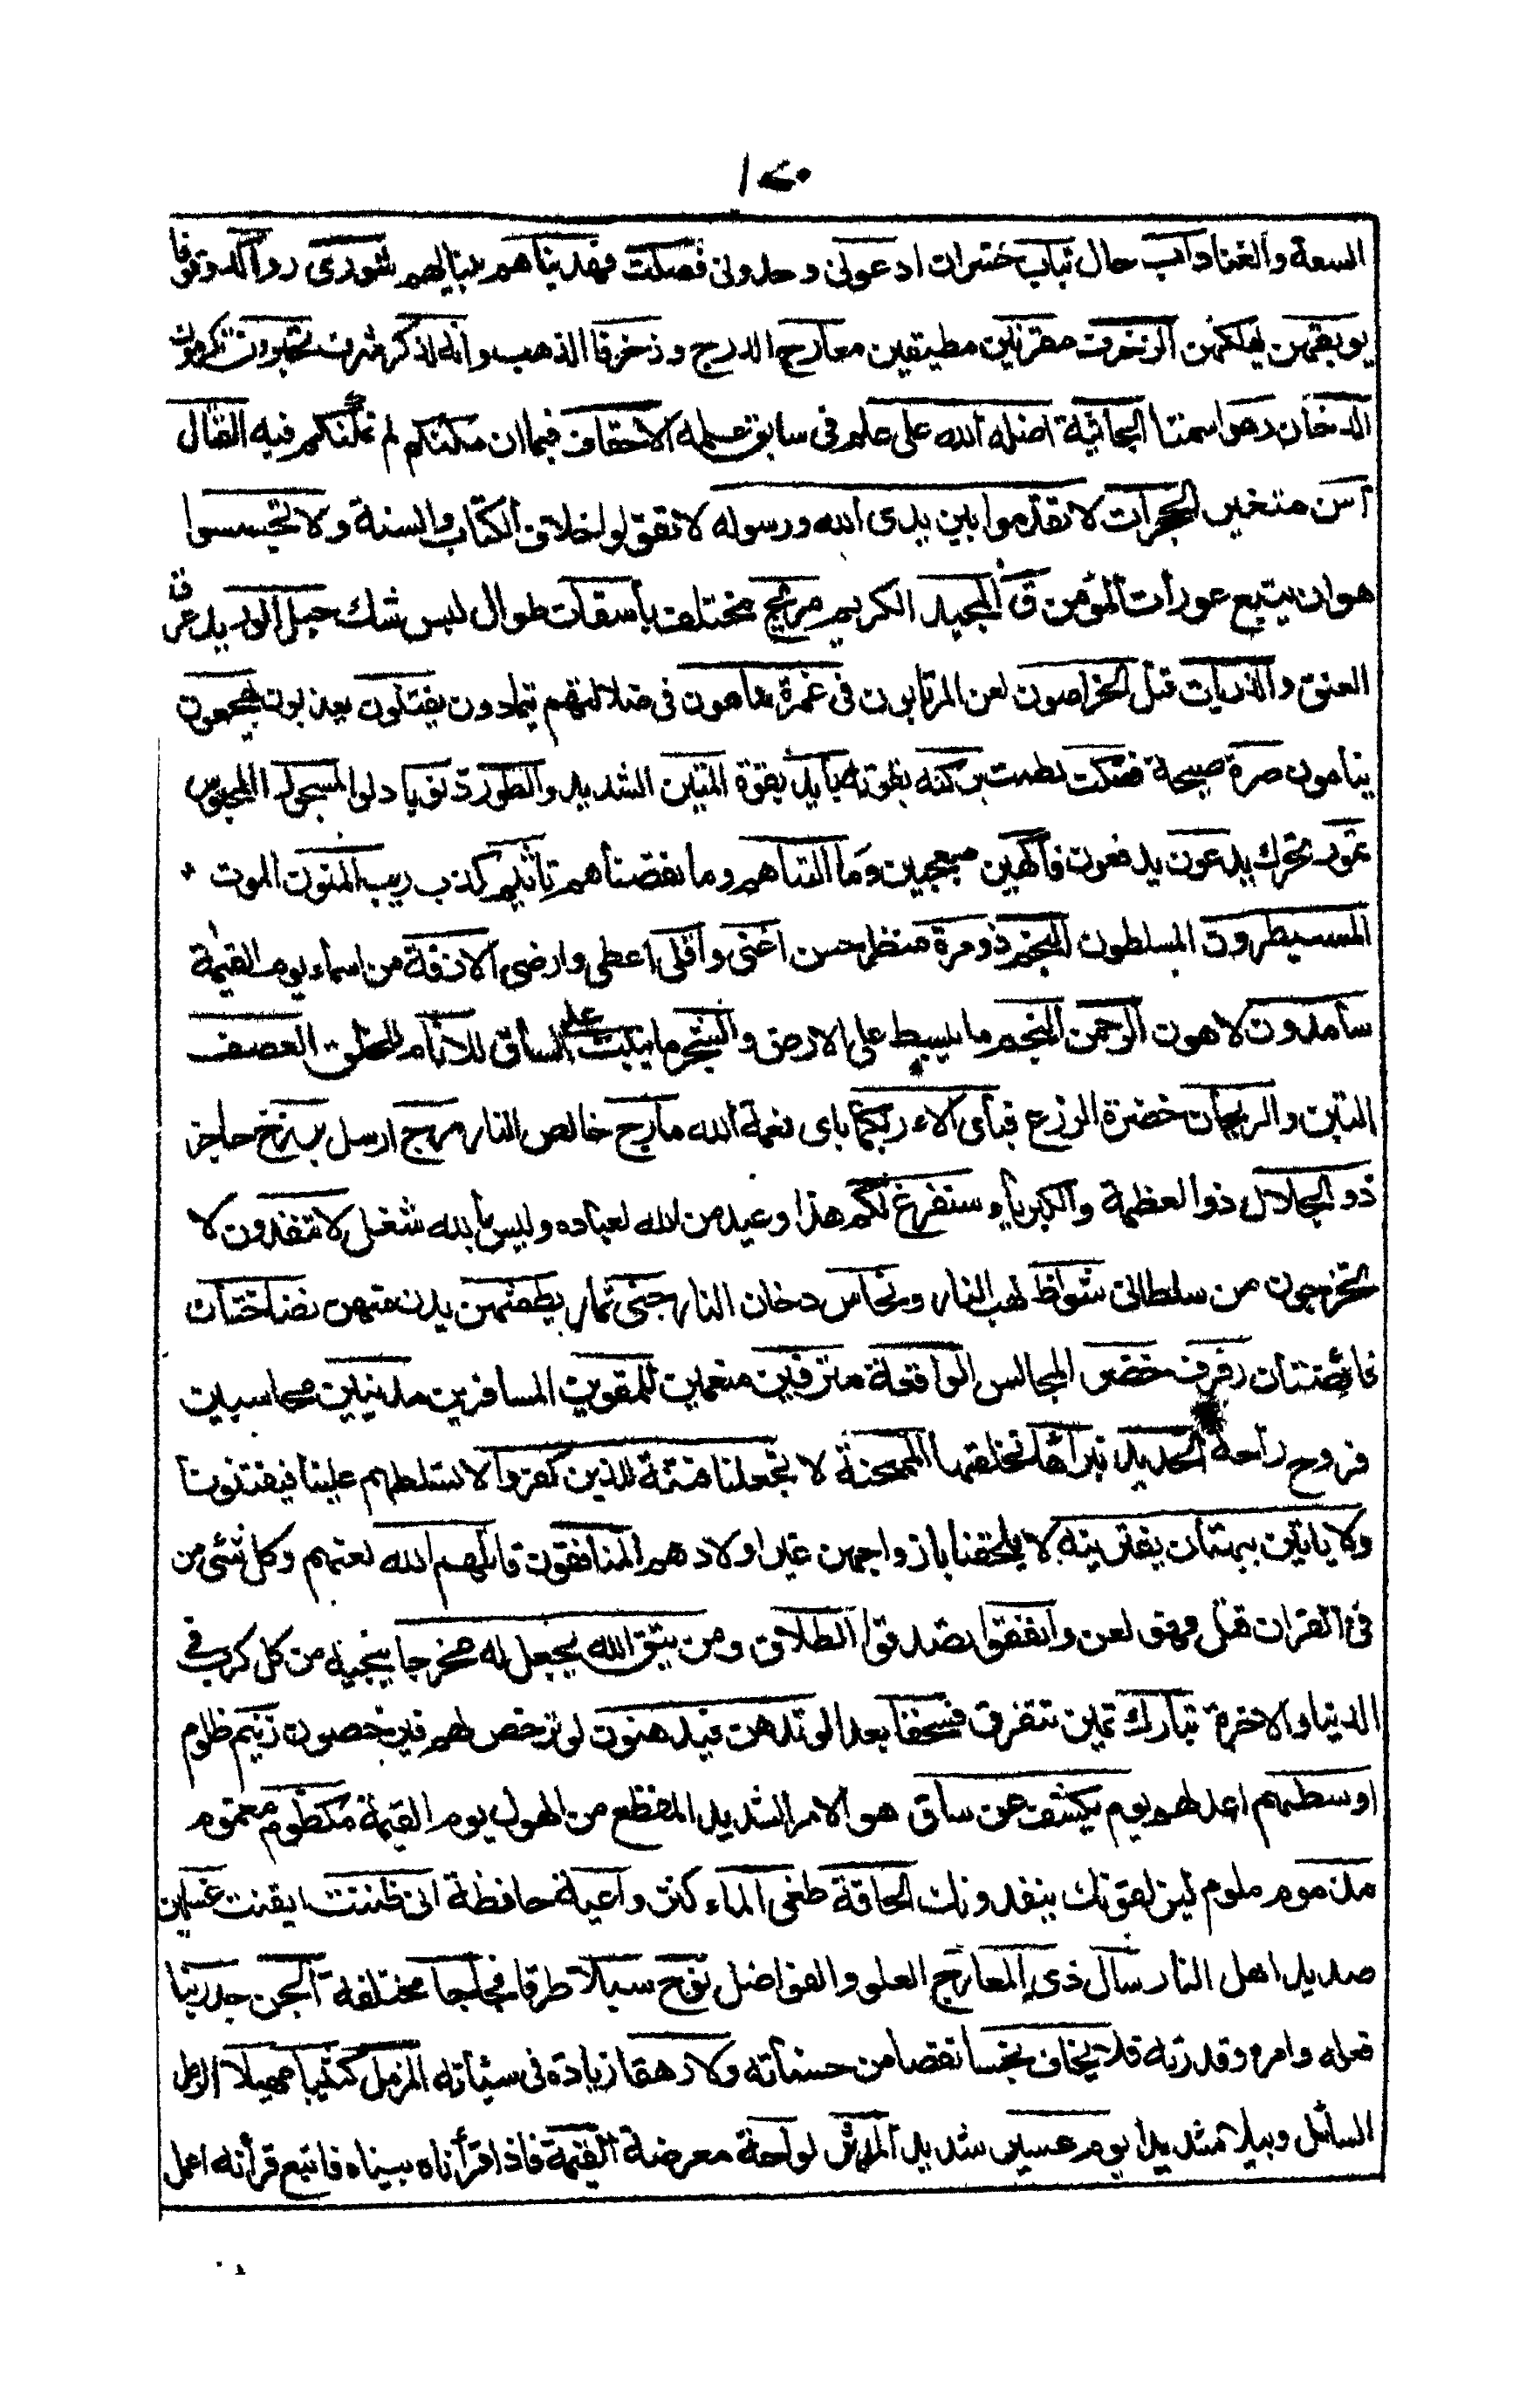 السعة والغنا داب حال تباب خسران ادعونى وحدونى فصلت فهديناهم بينا لهم شورى رواكد وقوفا
يوبقهن يهلكهن الزخرف مقرنين مطيقين معارج الدرج وزخرفا الذهب وانه لذكر شرف تحبرون تكرمون
الدخان رهوا سمتا الجاثية اضله الله على علم فى سابق علمه الاحقاف فيما ان مكنكم لم نمكنكم فيه القتال
آسن متغير الحجرات لا تقدموا بين يدى الله ورسوله لا تقولوا خلاف الكتاب والسنة ولا تجسسوا
هو ان يتبع عورات المؤمن ق المجيد الكريم مريج مختلف باسقات طوال لبس شك حبل الوريد عرق
العنق والذريات قتل الخراصون لعن المرتابون فى غمرة ساهون فى ضلالتهم يتمادون يفتنون يعذبون يهجعون
ينامون صرة صيحة فصكت لطمت بركنه بقوته بايد بقوة المتين الشديد والطور ذنوبا دلوا المسجور المحبوس
تمور تحرك يدعون يدفعون فاكهين معجبين وما التناهم وما نقصناهم تاثيم كذب ريب المنون الموت
المسيطرون المسلطون النجم ذو مرة منظر حسن اغنى واقنى اعطى وارضى الازفة من اسماء يوم القيمة
سامدون لاهون الرحمن النجم ما يبسط على الارض والشجر ما ينبت على الساق للانام للخلق العصف
التبن والريحان خضرة الزرع فباى الاء ربكما باى نعمة الله مارج خالص النار مرج ارسل برزخ حاجز
ذو الجلال ذو العظمة والكبرياء سنفرغ لكم هذا وعيد من الله لعباده وليس بالله شغل لا تنفذون لا
تخرجون من سلطانى شواظ لهب النار ونحاس دخان النار جنى ثمار يطمثهن يدن منهن نضاختان
فائضتان رفرف خضر المجالس الواقعة مترفين منعمين للمقوين المسافرين مدينين محاسبين
فروح راحة الحديد نبراها نخلقها الممتحنة لا تجعلنا فتنة للذين كفروا لا تسلطهم علينا فيفتنونا
ولا ياتين ببهتان يفترينه لا يلحقنا بازواجهن غير اولادهم المنافقون قاتلهم الله لعنهم وكل شئ من
فى القران قتل فهو لعن وانفقوا تصدقوا الطلاق ومن يتق الله يجعل له مخرجا ينجيه من كل كرب فى
الدنيا والاخرة تبارك تميز تتفرق فسحقا بعدا لو تدهن فيدهنون لو ترخص لهم فيرخصون زنيم ظلوم
اوسطهم اعدلهم يوم يكشف عن ساق هو الامر الشديد المفظع من الهول يوم القيمة مكظوم مغموم
مذموم ملوم ليزلقونك ينفذونك الحاقة طغى الماء كثر واعية حافظة انى ظننت ايقنت غسلين
صديد اهل النار سال ذى المعارج العلو والفواضل نوح سبلا طرقا فجاجا مختلفة الجن جد ربنا
فعله وامره وقدرته فلا يخاف بخسا نقصا من حسناته ولا رهقا زيادة فى سيئاته المزمل كثيبا مهيلا الرمل
السائل وبيلا شديدا يوم عسير شديد المدثر لواحة معرضة القيمة فاذا قرأناه بيناه فاتبع قرأنه اعمل